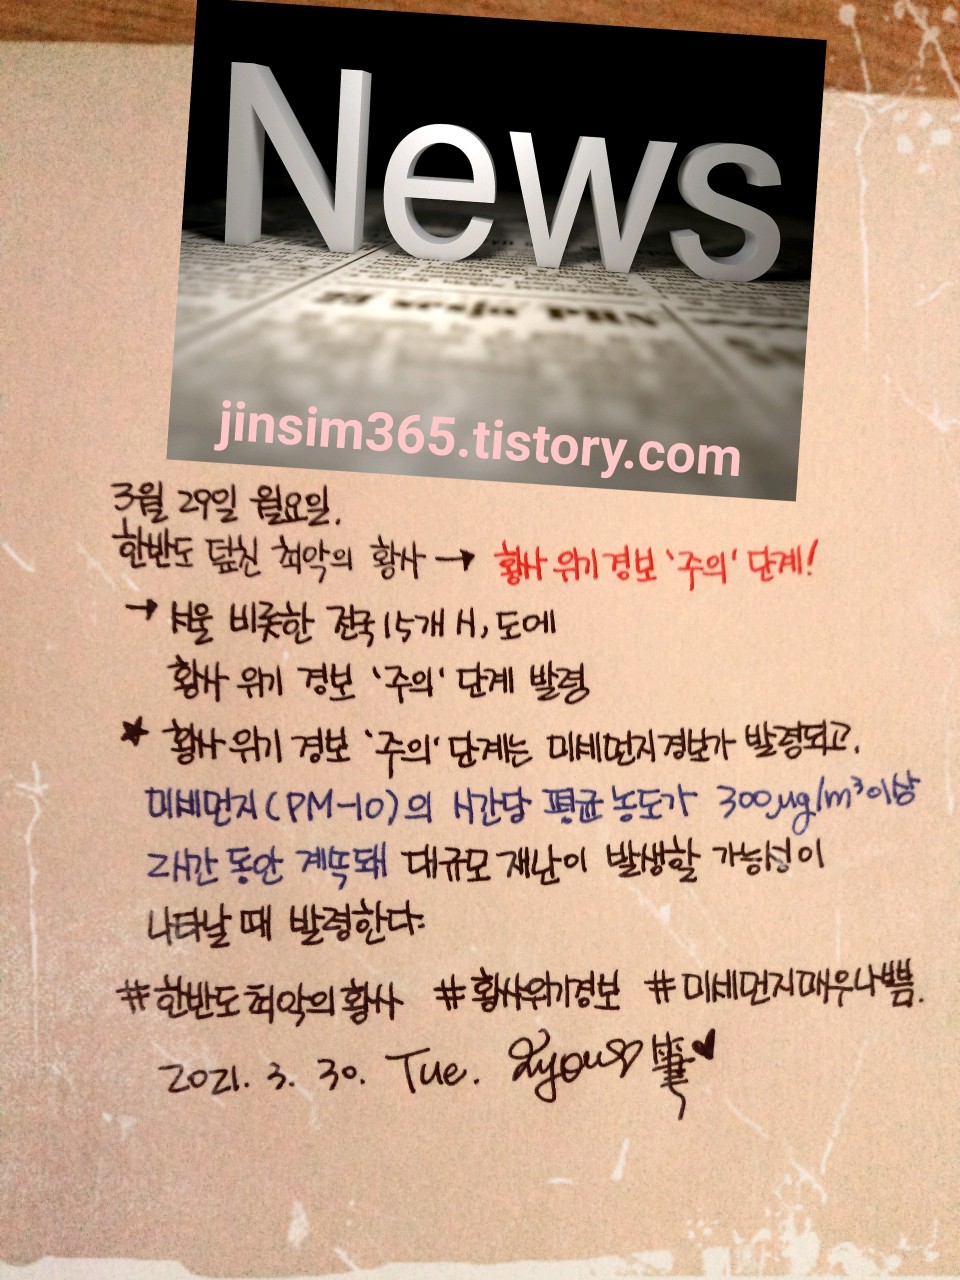 News
jinsim365.tistory.com
3월 29일 월요일.
한반도 덮친 최악의 황사 → 황사 위기 경보 '주의' 단계!
→ 서울 비롯한 전국 15개 시, 도에
황사 위기 경보 '주의' 단계 발령
★ 황사 위기 경보 '주의' 단계는 미세먼지경보가 발령되고,
미세먼지(PM-10)의 시간당 평균 농도가 300㎍/m³이상
2시간 동안 계속돼 대규모 재난이 발생할 가능성이
나타날 때 발령한다.
#한반도최악의황사 #황사위기경보 #미세먼지매우나쁨.
2021. 3. 30. Tue.